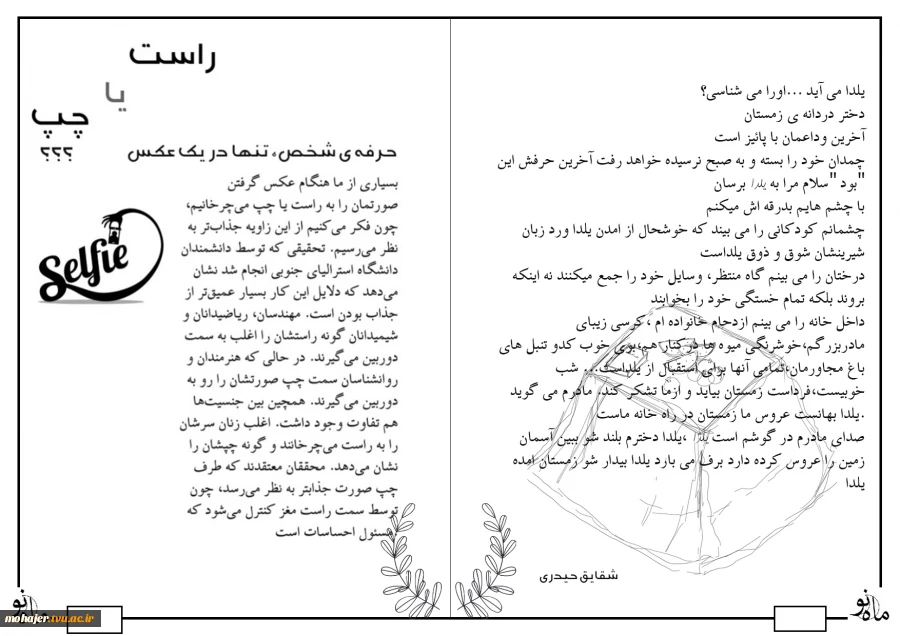 یلدا می آید ...اورا می شناسی؟
دختر دردانه ی زمستان
آخرین وداعمان با پائیز است
چمدان خود را بسته و به صبح نرسیده خواهد رفت آخرین حرفش این
"بود "سلام مرا به یلدا برسان
با چشم هایم بدرقه اش میکنم
چشمانم کودکانی را می بیند که خوشحال از امدن یلدا ورد زبان
شیرینشان شوق و ذوق یلداست
درختان را می بینم گاه منتظر، وسایل خود را جمع میکنند نه اینکه
بروند بلکه تمام خستگی خود را بخوابند
داخل خانه را می بینم ازدحام خانواده ام ،کرسی زیبای
مادربزرگم،خوشرنگی میوه ها در کنار هم،بوی خوب کدو تنبل های
باغ مجاورمان،تمامی آنها برای استقبال از یلداست... شب
خوبیست،فرداست زمستان بیاید و ازما تشکر کند. مادرم می گوید
.یلدا بهانست عروس ما زمستان در راه خانه ماست
صدای مادرم در گوشم است یلدا ،یلدا دخترم بلند شو ببین آسمان
زمین را عروس کرده دارد برف می بارد یلدا بیدار شو زمستان امده
یلدا
شقایق حیدری
ماه نو
راست
یا
چپ
؟؟؟
حرفه ی شخص، تنها در یک عکس
بسیاری از ما هنگام عکس گرفتن
صورتمان را به راست یا چپ می‌چرخانیم،
چون فکر می‌کنیم از این زاویه جذاب‌تر به
نظر می‌رسیم. تحقیقی که توسط دانشمندان
دانشگاه استرالیای جنوبی انجام شد نشان
می‌دهد که دلایل این کار بسیار عمیق‌تر از
جذاب بودن است. مهندسان، ریاضیدانان و
شیمیدانان گونه راستشان را اغلب به سمت
دوربین می‌گیرند. در حالی که هنرمندان و
روانشناسان سمت چپ صورتشان را رو به
دوربین می‌گیرند. همچین بین جنسیت‌ها
هم تفاوت وجود داشت. اغلب زنان سرشان
را به راست می‌چرخانند و گونه چپشان را
نشان می‌دهد. محققان معتقدند که طرف
چپ صورت جذابتر به نظر می‌رسد، چون
توسط سمت راست مغز کنترل می‌شود که
مسئول احساسات است
Selfie
mohajer.tvu.ac.ir